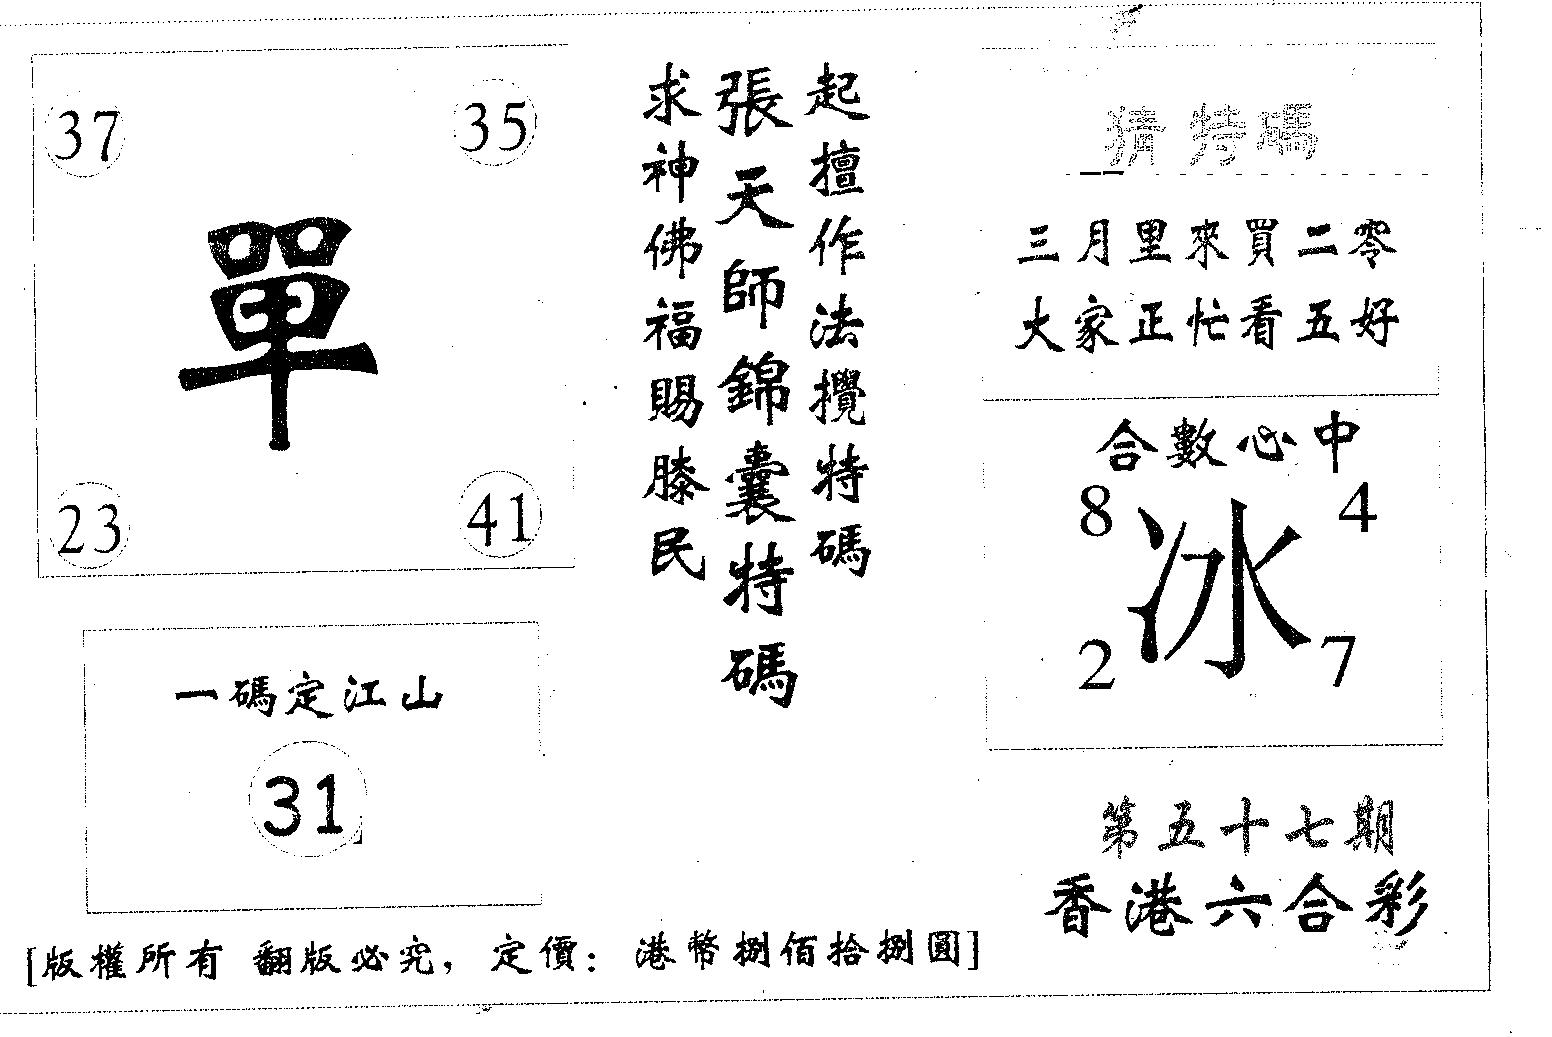 37
35
單
23
41
一碼定江山
31
起擅作法攪特碼
張天師錦囊特碼
求神佛福賜膝民
猜特碼
三月里來買二零
大家正忙看五好
合數心中
8
4
冰
2
7
第五十七期
香港六合彩
[版權所有 翻版必究，定價：港幣捌佰拾捌圓]